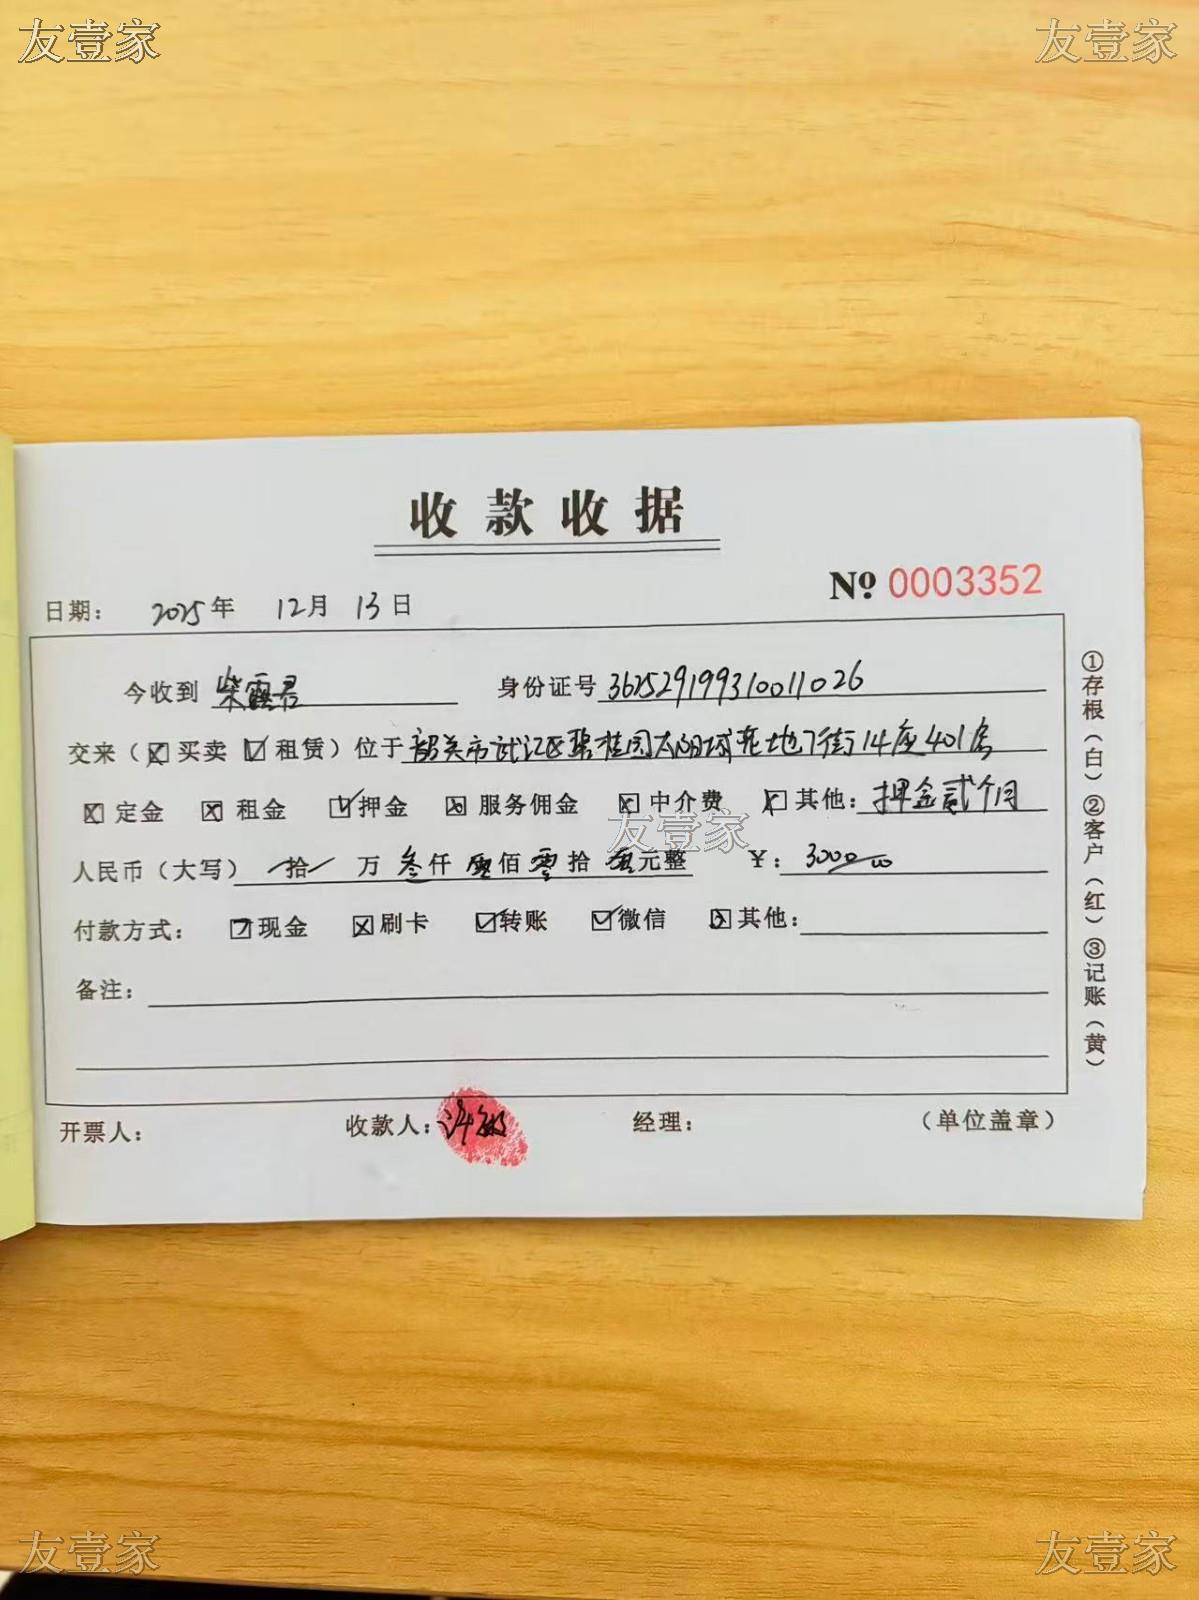 友壹家 友壹家
收款收据
№ 0003352
日期： 2025年 12月 13日
今收到 柴露君 身份证号 362529199310011026
交来（☒买卖 ☑租赁）位于 韶关市武江区碧桂园太阳城花地 街14座401房
☒定金 ☒租金 ☑押金 ☒服务佣金 ☒中介费 ☑其他：押金贰个月
友壹家
人民币（大写） 拾 万 叁仟 零佰 零拾 零元整 ¥：3000.00
付款方式： 现金 ☒刷卡 ☑转账 ☑微信 ☒其他：
备注：
开票人： 收款人：许 经理： （单位盖章）
①存根（白）②客户（红）③记账（黄）
友壹家 友壹家